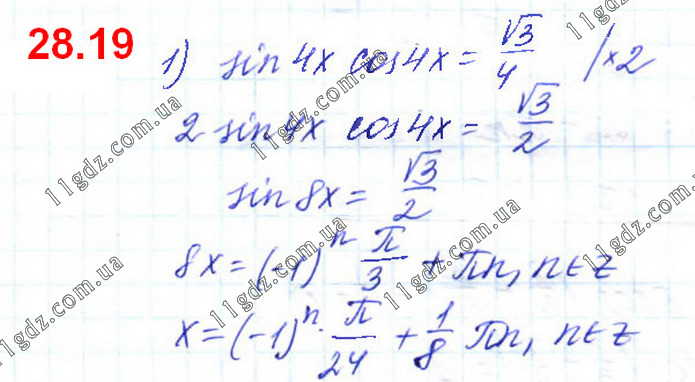 28.19
1) sin 4x cos 4x = √3/4 /×2
2 sin 4x cos 4x = √3/2
sin 8x = √3/2
8x = (-1)ⁿ π/3 + πn, n∈z
x = (-1)ⁿ · π/24 + 1/8 πn, n∈z
11gdz.com.ua
11gdz.com.ua
11gdz.com.ua
11gdz.com.ua
11gdz.com.ua
11gdz.com.ua